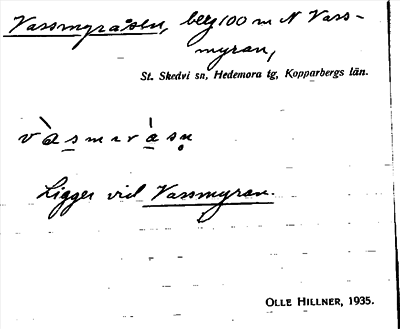 Vassmyråsen, belg 100 m N Vass-
myran,
St. Skedvi sn, Hedemora tg, Kopparbergs län.
Ligger vid Vassmyran.
OLLE HILLNER, 1935.